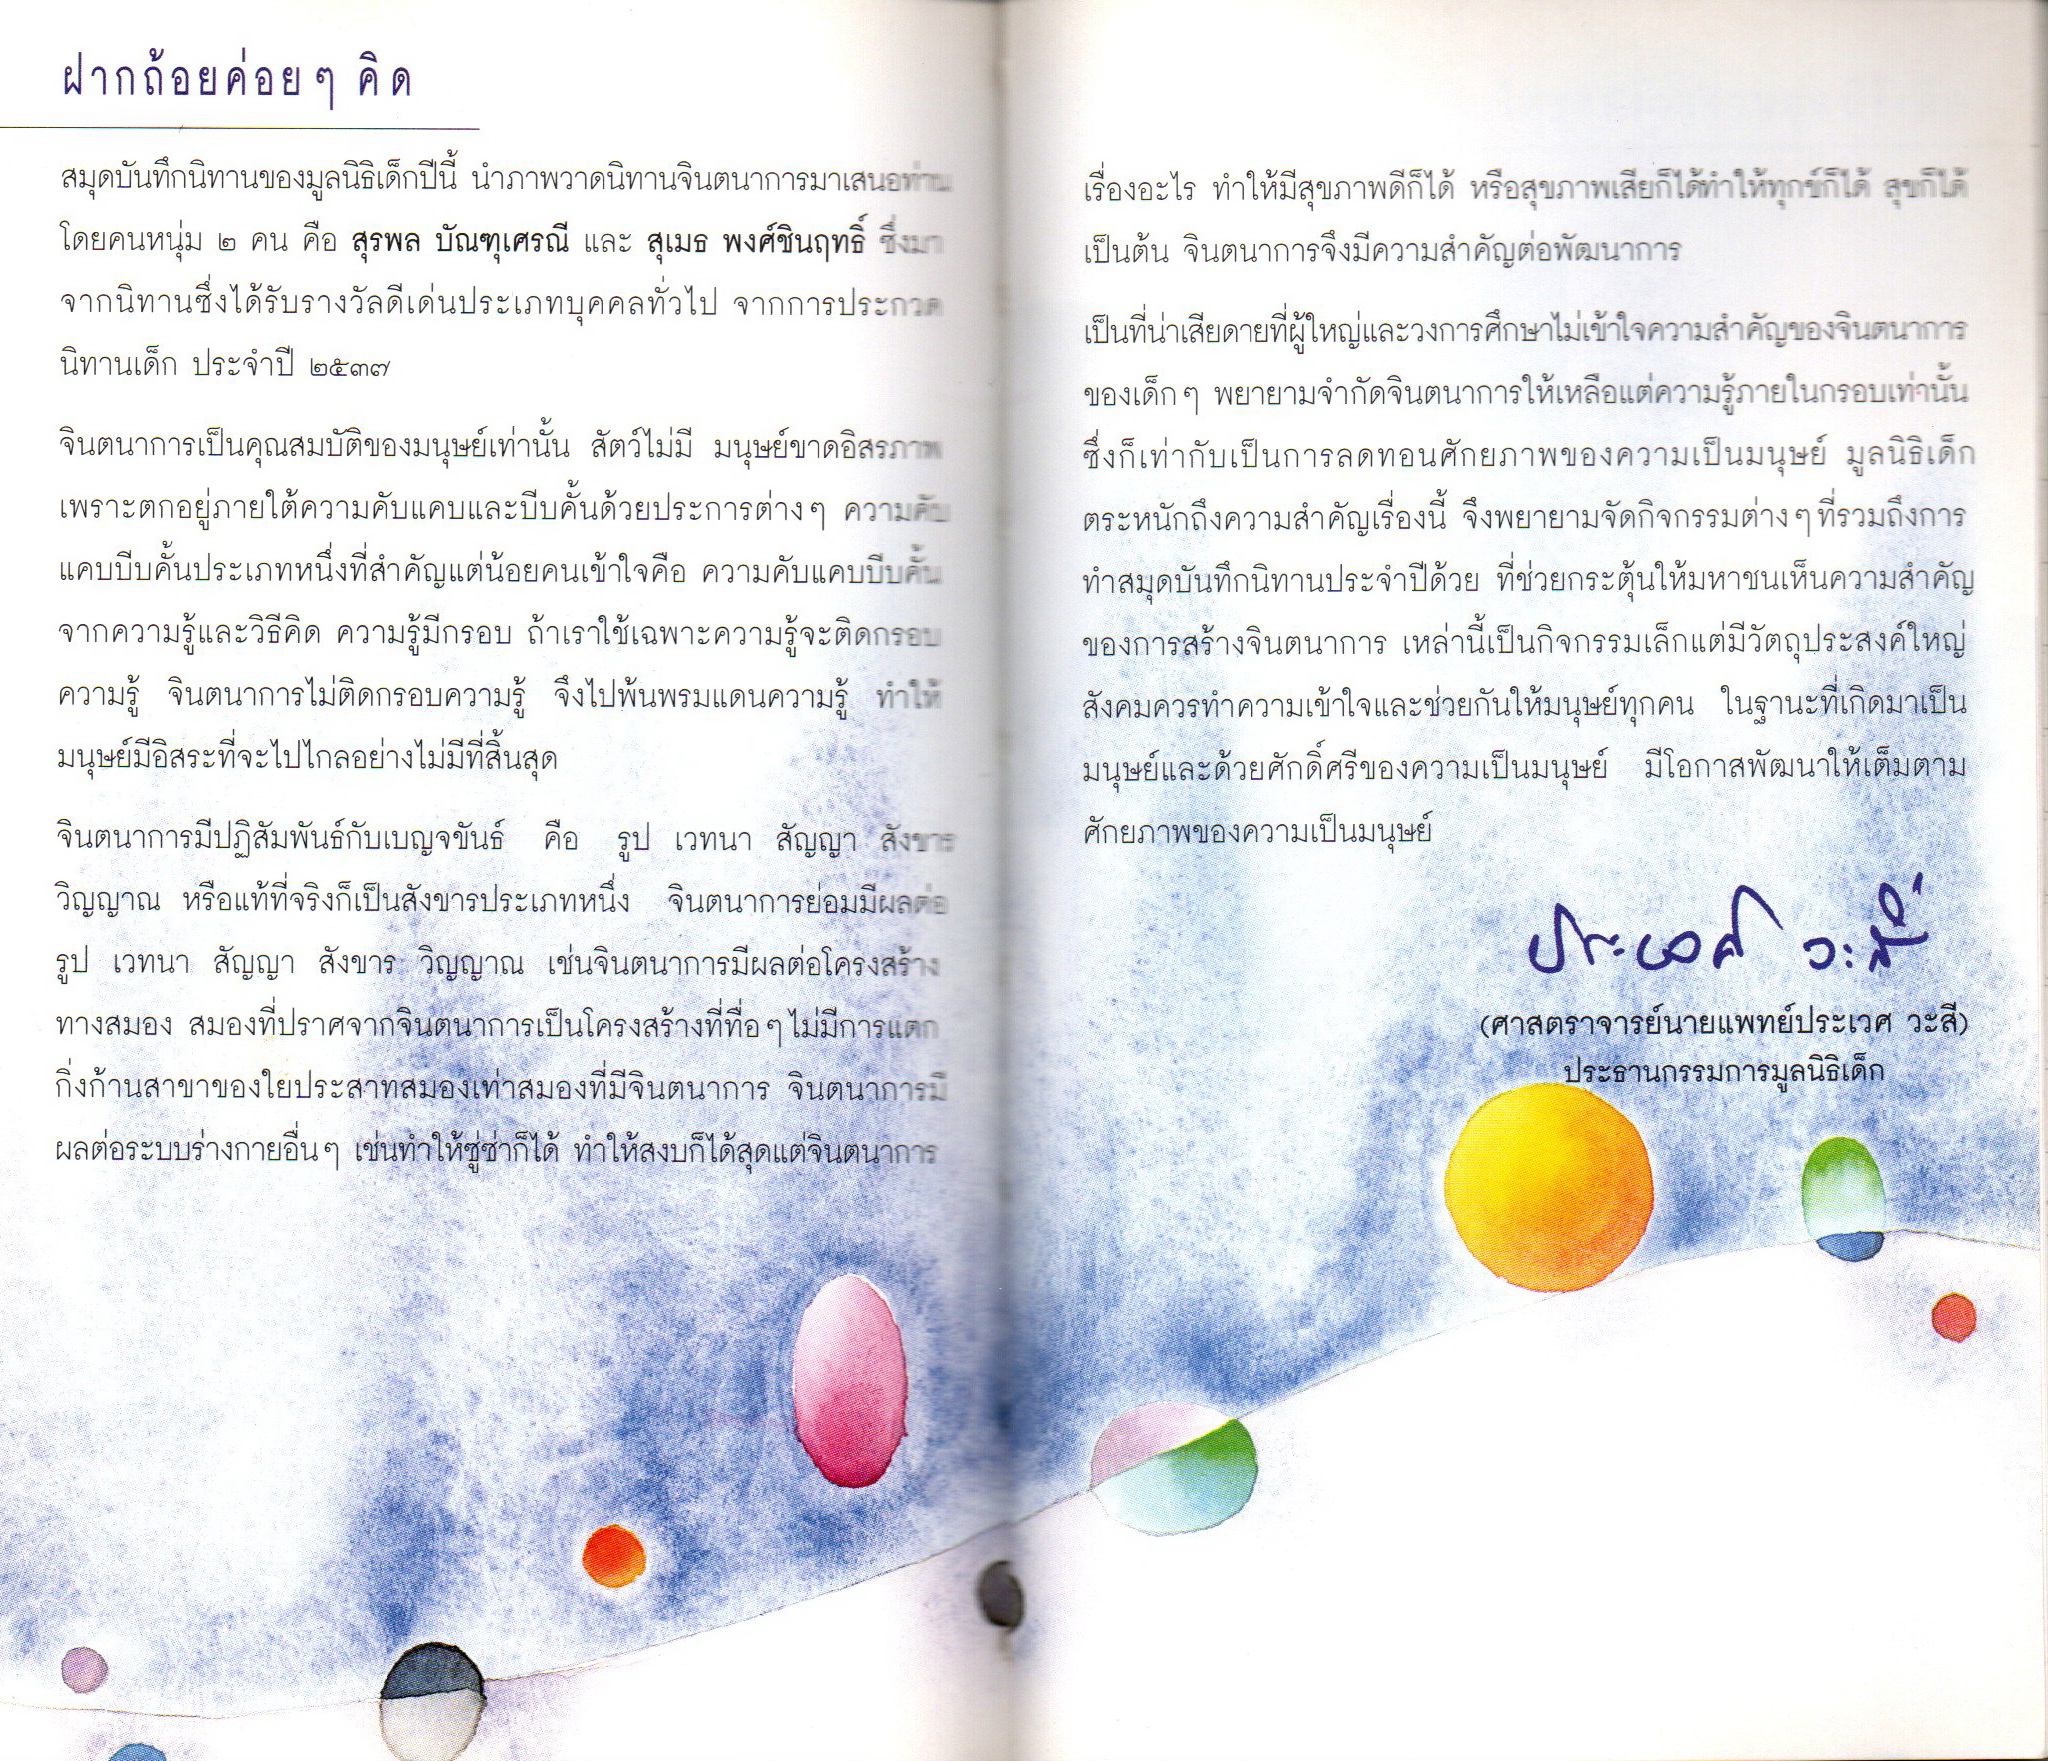 ฝากถ้อยค่อยๆ คิด
สมุดบันทึกนิทานของมูลนิธิเด็กปีนี้ นำภาพวาดนิทานจินตนาการมาเสนอท่าน
โดยคนหนุ่ม ๒ คน คือ สุรพล บัณฑุเศรณี และ สุเมธ พงศ์ชินฤทธิ์ ซึ่งมา
จากนิทานซึ่งได้รับรางวัลดีเด่นประเภทบุคคลทั่วไป จากการประกวด
นิทานเด็ก ประจำปี ๒๕๓๗
จินตนาการเป็นคุณสมบัติของมนุษย์เท่านั้น สัตว์ไม่มี มนุษย์ขาดอิสรภาพ
เพราะตกอยู่ภายใต้ความคับแคบและบีบคั้นด้วยประการต่างๆ ความคับ
แคบบีบคั้นประเภทหนึ่งที่สำคัญแต่น้อยคนเข้าใจคือ ความคับแคบบีบคั้น
จากความรู้และวิธีคิด ความรู้มีกรอบ ถ้าเราใช้เฉพาะความรู้จะติดกรอบ
ความรู้ จินตนาการไม่ติดกรอบความรู้ จึงไปพ้นพรมแดนความรู้ ทำให้
มนุษย์มีอิสระที่จะไปไกลอย่างไม่มีที่สิ้นสุด
จินตนาการมีปฏิสัมพันธ์กับเบญจขันธ์ คือ รูป เวทนา สัญญา สังขาร
วิญญาณ หรือแท้ที่จริงก็เป็นสังขารประเภทหนึ่ง จินตนาการย่อมมีผลต่อ
รูป เวทนา สัญญา สังขาร วิญญาณ เช่นจินตนาการมีผลต่อโครงสร้าง
ทางสมอง สมองที่ปราศจากจินตนาการเป็นโครงสร้างที่ทื่อๆ ไม่มีการแตก
กิ่งก้านสาขาของใยประสาทสมองเท่าสมองที่มีจินตนาการ จินตนาการมี
ผลต่อระบบร่างกายอื่นๆ เช่นทำให้ซู่ซ่าก็ได้ ทำให้สงบก็ได้สุดแต่จินตนาการ
เรื่องอะไร ทำให้มีสุขภาพดีก็ได้ หรือสุขภาพเสียก็ได้ทำให้ทุกข์ก็ได้ สุขก็ได้
เป็นต้น จินตนาการจึงมีความสำคัญต่อพัฒนาการ
เป็นที่น่าเสียดายที่ผู้ใหญ่และวงการศึกษาไม่เข้าใจความสำคัญของจินตนาการ
ของเด็กๆ พยายามจำกัดจินตนาการให้เหลือแต่ความรู้ภายในกรอบเท่านั้น
ซึ่งก็เท่ากับเป็นการลดทอนศักยภาพของความเป็นมนุษย์ มูลนิธิเด็ก
ตระหนักถึงความสำคัญเรื่องนี้ จึงพยายามจัดกิจกรรมต่างๆ ที่รวมถึงการ
ทำสมุดบันทึกนิทานประจำปีด้วย ที่ช่วยกระตุ้นให้มหาชนเห็นความสำคัญ
ของการสร้างจินตนาการ เหล่านี้เป็นกิจกรรมเล็กแต่มีวัตถุประสงค์ใหญ่
สังคมควรทำความเข้าใจและช่วยกันให้มนุษย์ทุกคน ในฐานะที่เกิดมาเป็น
มนุษย์และด้วยศักดิ์ศรีของความเป็นมนุษย์ มีโอกาสพัฒนาให้เต็มตาม
ศักยภาพของความเป็นมนุษย์
ประเวศ วะสี
(ศาสตราจารย์นายแพทย์ประเวศ วะสี)
ประธานกรรมการมูลนิธิเด็ก